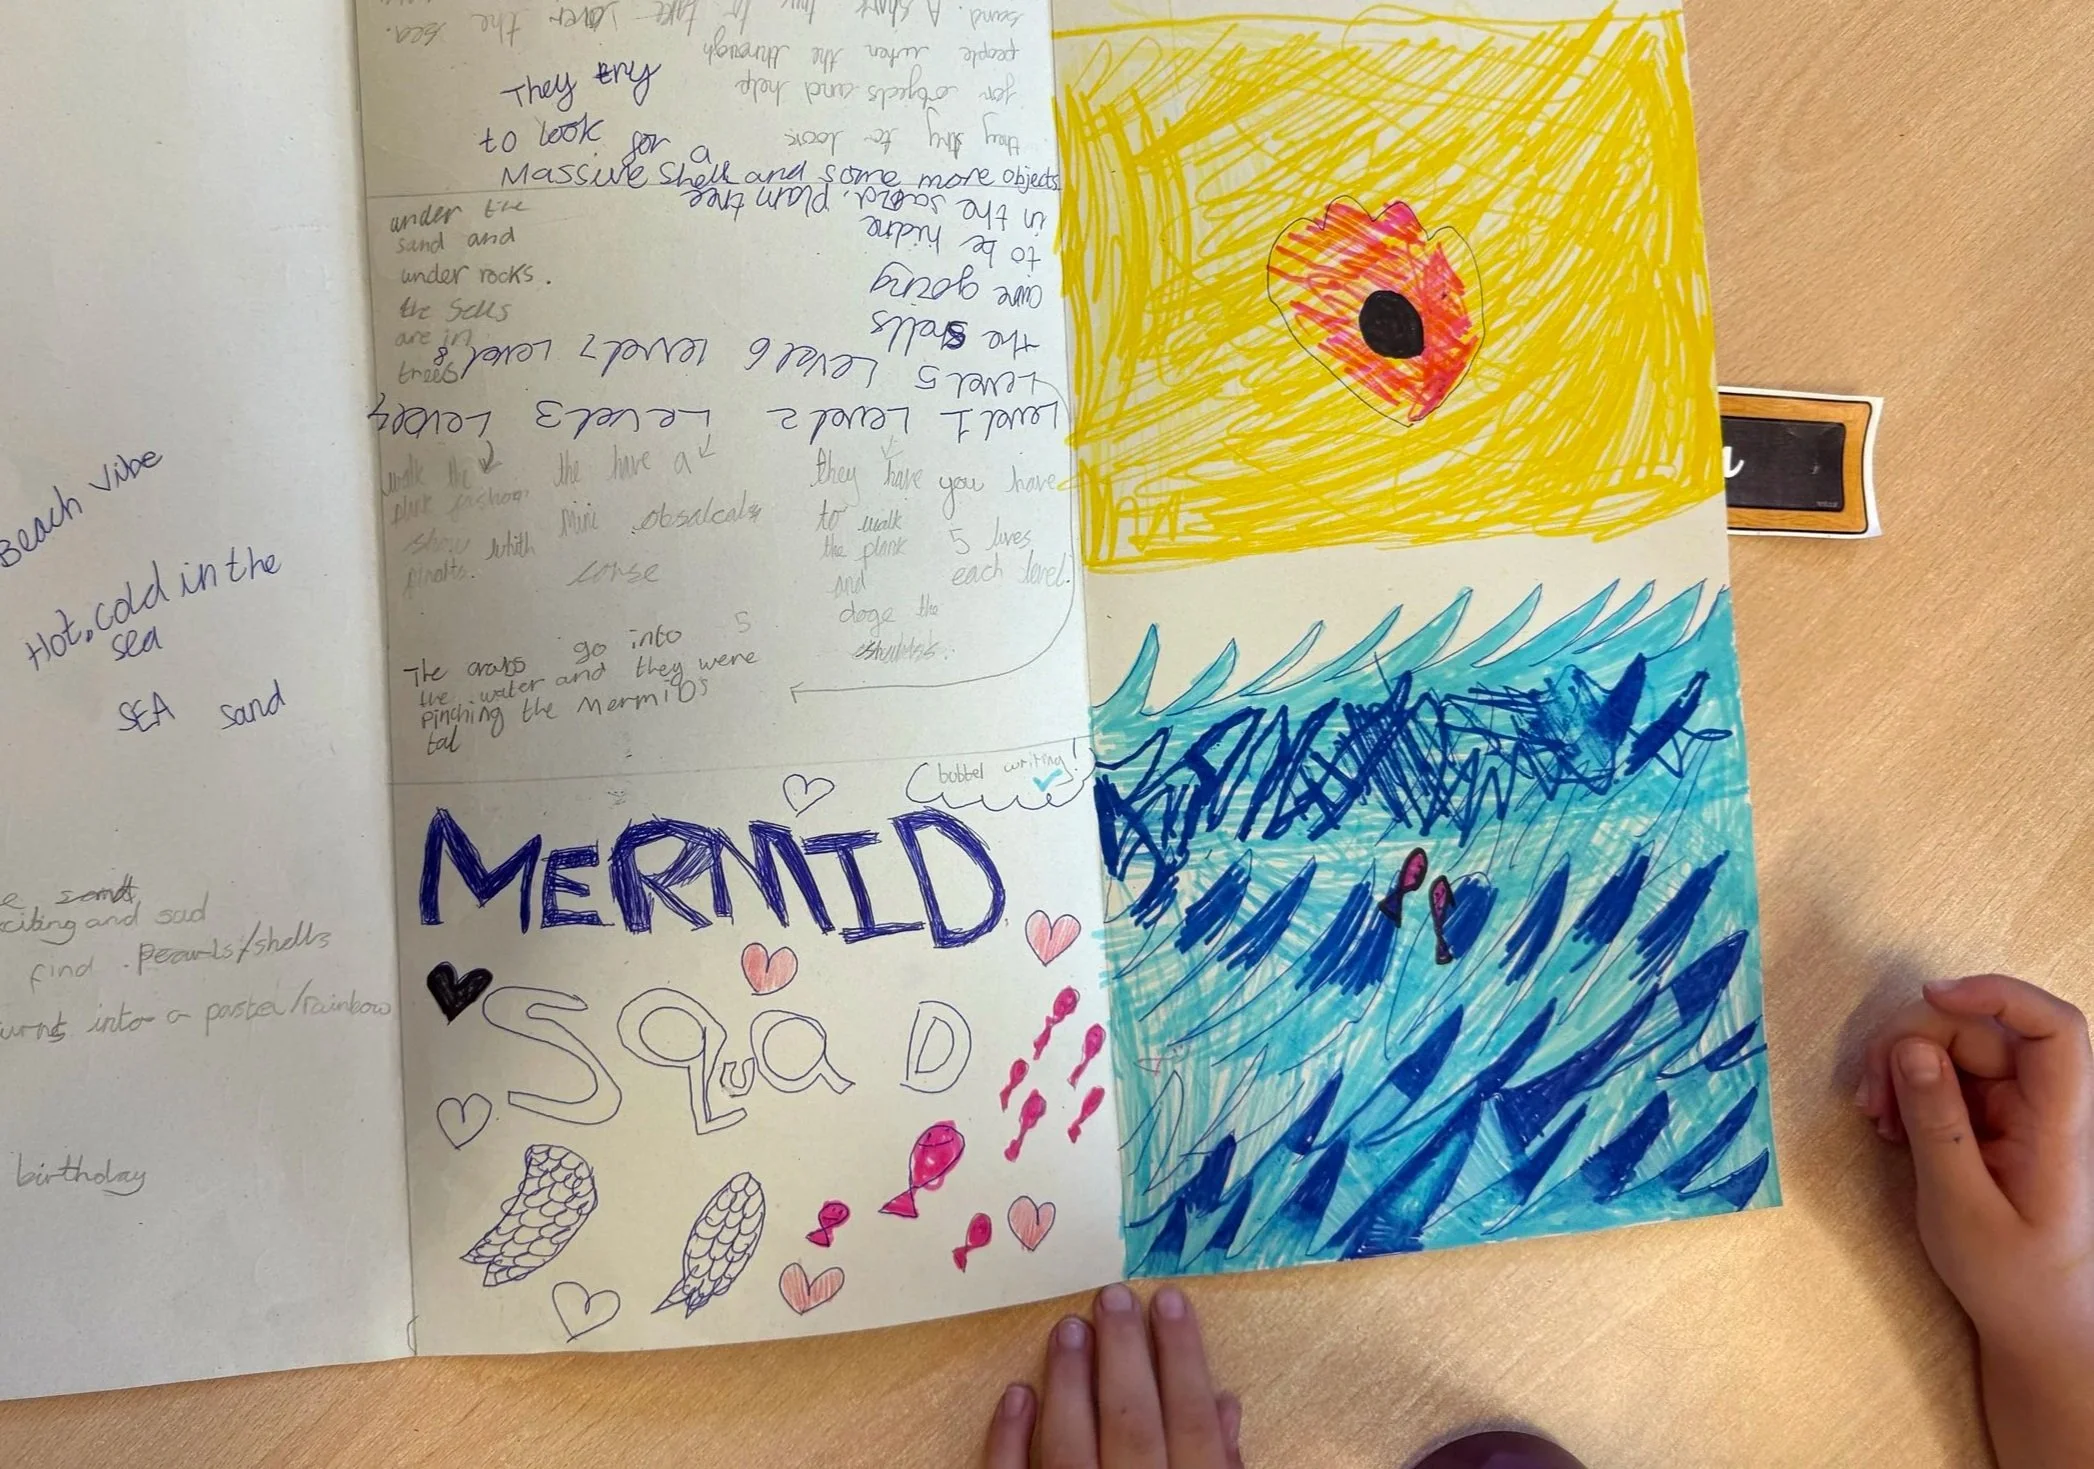 Beach Vibe
Hot, cold in the
sea
SEA sand
citing and sad
find pearls/shells
into a pastel/rainbow
birthday
sand. A take over the sea.
people when the through
for objects and help
they try to look
They try
to look for
Massive shell and
objects
in the sand. Plam tree
to be hidne
are going
the shells
Level 5 Level 6 Level 7 Level 8
Level 1 Level 2 Level 3 Level 4
under the
sand and
under rocks.
the sells
are in
trees
walk the
plank fashon
show whith
the have a
mini obsalcals
corse
they have
to walk
the plank
and
doge the
you have
5 lives
each level.
The crabs go into 5
the water and they were
pinching the MermiDs
tal
bubbel writing!
MERMID
SQuaD